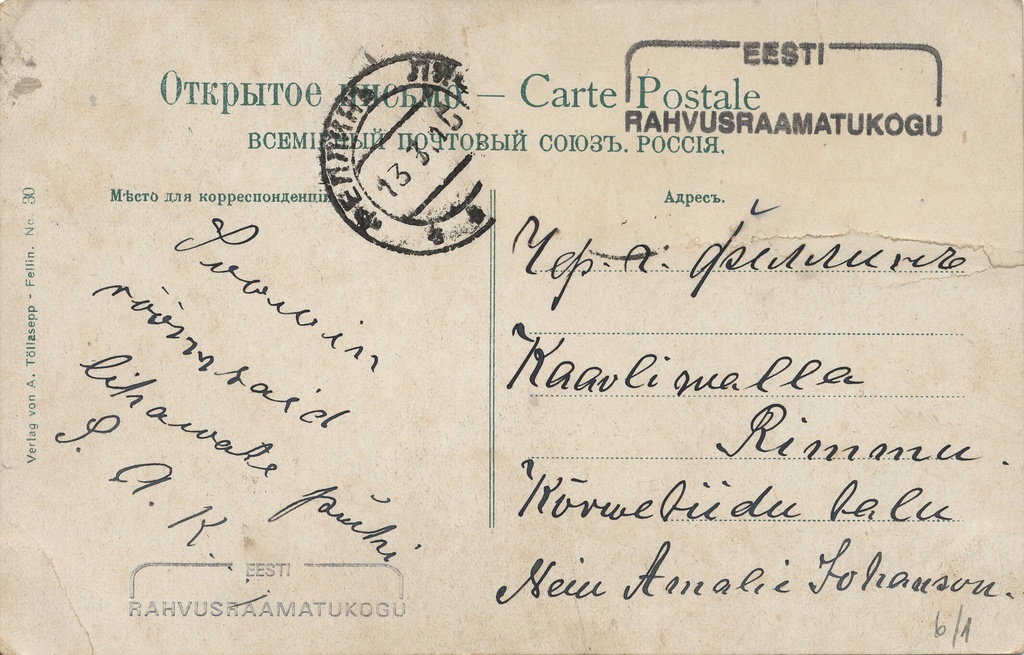 EESTI
RAHVUSRAAMATUKOGU
Открытое письмо — Carte Postale
ВСЕМІРНЫЙ ПОЧТОВЫЙ СОЮЗЪ. РОССІЯ.
ФЕЛЛИНЪ ЛИФ
13
Мѣсто для корреспонденціи
Адресъ.
Verlag von A. Töllasepp - Fellin. No. 30
Soowin
rõõmsaid
lihawate pühi
S. A. K.
Чер. г. Феллинъ
Kaarli walla
Rimmu.
Kõrwetüdu talu
Neiu Amalie Johanson.
6/1
EESTI
RAHVUSRAAMATUKOGU